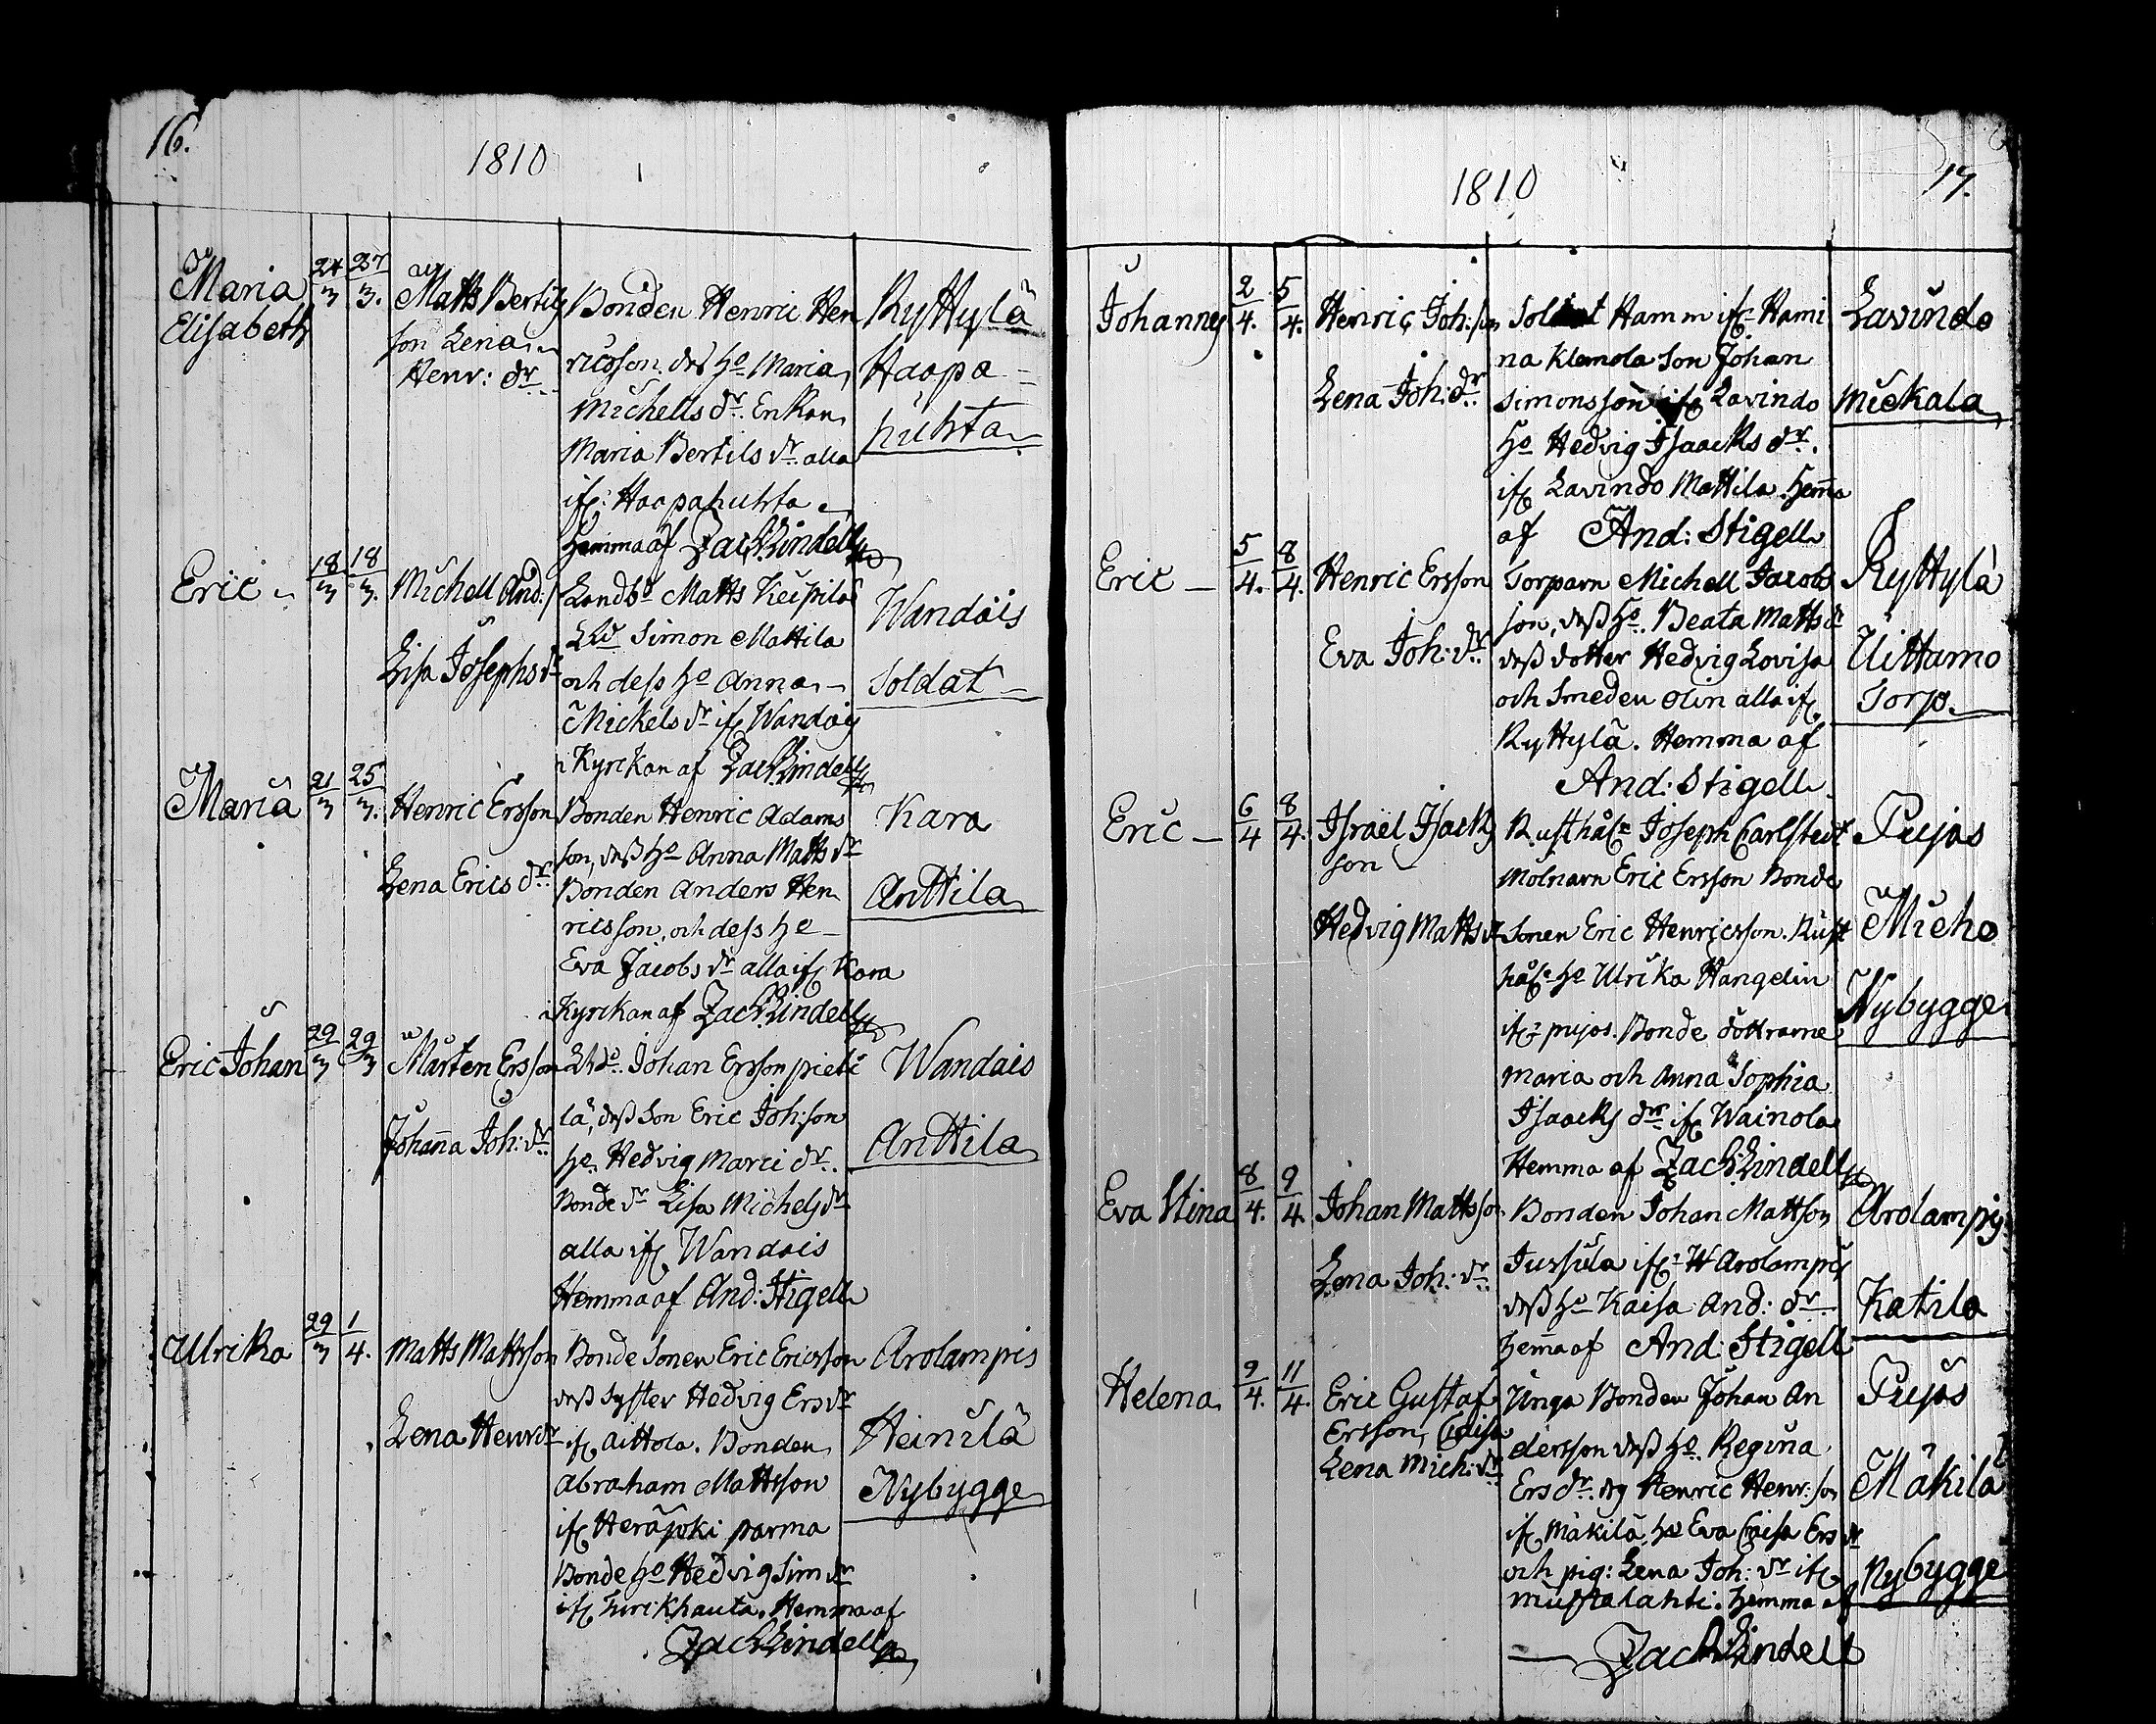 16.
1810
Maria
Elisabeth
24/3 27/3.
Matts Bertils
son Lena
Henr: dr.
Bonden Henric Hen
ricsson. dess ho Maria
Michells dr. Enkan
Maria Bertils dr. alla
ifr: Haapahuhta
Hemma af Zach Lindell
Ryttylä
Haapa=
huhta
Eric
18/3 18/3.
Michell And:
Lisa Josephs dr
Landbo Matts Keipilä
Simon Mattila
och dess ho Anna
Mickels dr ifr Wandais
i Kyrckan af Zach Lindell
Wandais
Soldat
Maria
21/3 25/3.
Henric Ersson
Lena Erics dr.
Bonden Henric Adams
son, dess ho Anna Matts dr
Bonden Anders Hen
ricsson, och dess ho
Eva Jacobs dr alla ifr Kara
i Kyrckan af Zach Lindell
Kara
Anttila
Eric Johan
29/3 29/3
Mårten Ersson
Johanna Joh: dr.
Johan Ersson pieti
lä, dess Son Eric Joh:son
ho. Hedvig Marci dr.
Bonde dr Lisa Michels dr
alla ifr Wandais
Hemma af And: Stigell
Wandais
Anttila
Ulrika
29/3 1/4.
Matts Mattsson
Lena Henr dr
Bonde Sonen Eric Ericsson
dess Syster Hedvig Ers dr
ifr Aittola. Bonden
Abraham Mattsson
ifr Heräjoki parma
Bonde ho Hedvig Sim dr
ifr Hemma af
Zach Lindell
Arolampis
Heinilä
Nybygge
17.
1810
Johannes
2/4. 5/4.
Henric Joh:son
Lena Joh: dr.
Soldat Hamm ifr Hami
na Klemola Son Johan
Simonsson ifr Lavindo
ho Hedvig Isaacks dr.
ifr Lavindo Mattila. Hemma
af And: Stigell
Lavindo
Mickala
Eric
5/4. 8/4.
Henric Ersson
Eva Joh: dr.
Torparn Michell Jacobs
son, dess ho. Beata Matts dr
dess dotter Hedvig Lovisa
och Smeden Olin alla ifr
Ryttylä. Hemma af
And: Stigell
Ryttylä
Uittamo
Torp.
Eric
6/4 8/4.
Israel Isacks
son
Hedvig Matts dr
Rusthålr Joseph Carlstedt
Mölnarn Eric Ersson Bonde
Sonen Eric Henricsson. Rust
hålr ho Ulrika Hangelin
ifr pujos. Bonde döttrarne
Maria och Anna Sophia
Isaacks dr ifr Wainola
Hemma af Zach: Lindell
Pujos
Micho
Nybygge
Eva Stina
8/4. 9/4.
Johan Mattsson
Lena Joh: dr
Bonden Johan Mattson
Jussula ifr W Arolampis
dess ho Kaisa And: dr
Hemma af And: Stigell
Arolampis
Katila
Helena
9/4. 11/4.
Eric Gustaf
Ersson, Caisa
Lena Mich: dr
Unga Bonden Johan An
dersson dess ho. Regina
Ers dr. dg Henric Henr:son
ifr Mäkilä, ho Eva Caisa Ers dr
och pig: Lena Joh: dr ifr
mustalahti. Hemma af
Zach Lindell
Pujos
Mäkilä
Nybygge